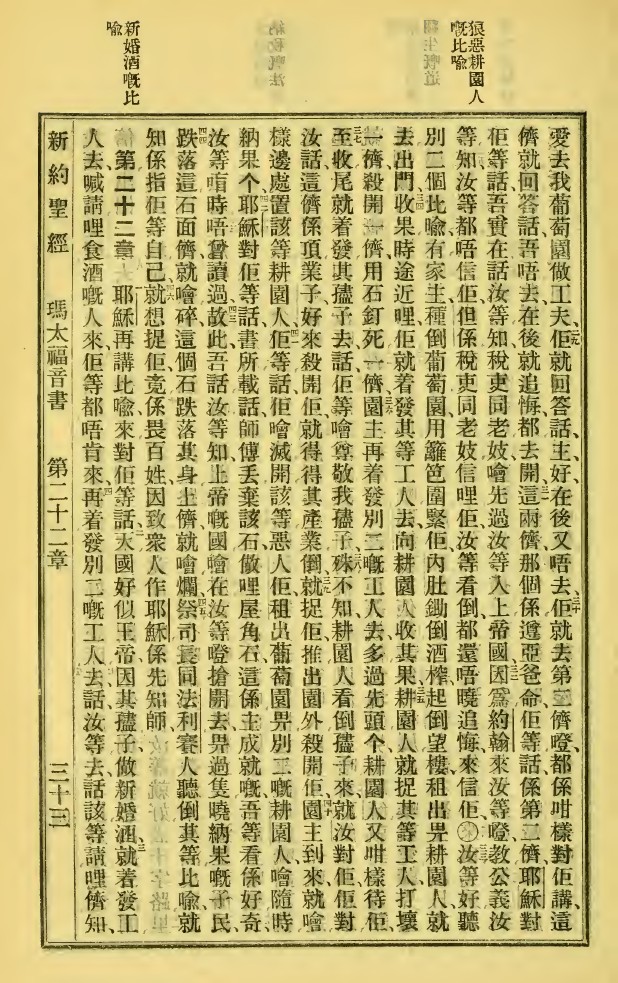 狼惡耕園人
嘅比喻
新婚酒嘅比
喻
愛去我葡萄園做工夫佢就回答話主好在後又唔去佢就去第二儕噔都係咁樣對佢講這
儕就回答話吾唔去在後就追悔都去開這兩儕那個係遵亞爸命佢等話係第二儕耶穌對
佢等話吾實在話汝等知稅吏同老妓噲先過汝等入上帝國因爲約翰來汝等噔教公義汝
等知汝等都唔信佢但係稅吏同老妓信哩佢汝等看倒都還唔曉追悔來信佢汝等好聽
別二個比喻有家主種倒葡萄園用籬笆圍緊佢內肚鋤倒酒榨起倒望樓租出畀耕園人就
去出門收果時途近哩佢就着發其等工人去向耕園人收其果耕園人就捉其等工人打壞
一儕殺開一儕用石釘死一儕園主再着發別二嘅工人去多過先頭个耕園人又咁樣待佢
至收尾就着發其孻子去話佢等噲尊敬我孻子殊不知耕園人看倒孻子來就汝對佢佢對
汝話這儕係頂業子好來殺開佢就得得其產業倒就捉佢推出園外殺開佢園主到來就噲
樣邊處置該等耕園人佢等話佢噲滅開該等惡人佢租出葡萄園畀別二嘅耕園人噲隨時
納果个耶穌對佢等話書所載話師傅丢棄該石做哩屋角石這係主成就嘅吾等看係好奇
汝等唷時唔曾讀過故此吾話汝等知上帝嘅國噲在汝等噔搶開去畀過隻曉納果嘅子民
跌落這石面儕就噲碎這個石跌落其身上儕就噲爛祭司長同法利賽人聽倒其等比喻就
知係指佢等自己就想捉佢竟係畏百姓因致衆人作耶穌係先知師
第二十二章 耶穌再講比喻來對佢等話天國好似王帝因其孻子做新婚酒就着發工
人去喊請哩食酒嘅人來佢等都唔肯來再着發別二嘅工人去話汝等去話該等請哩儕知
新約聖經 瑪太福音書 第二十二章 三十三